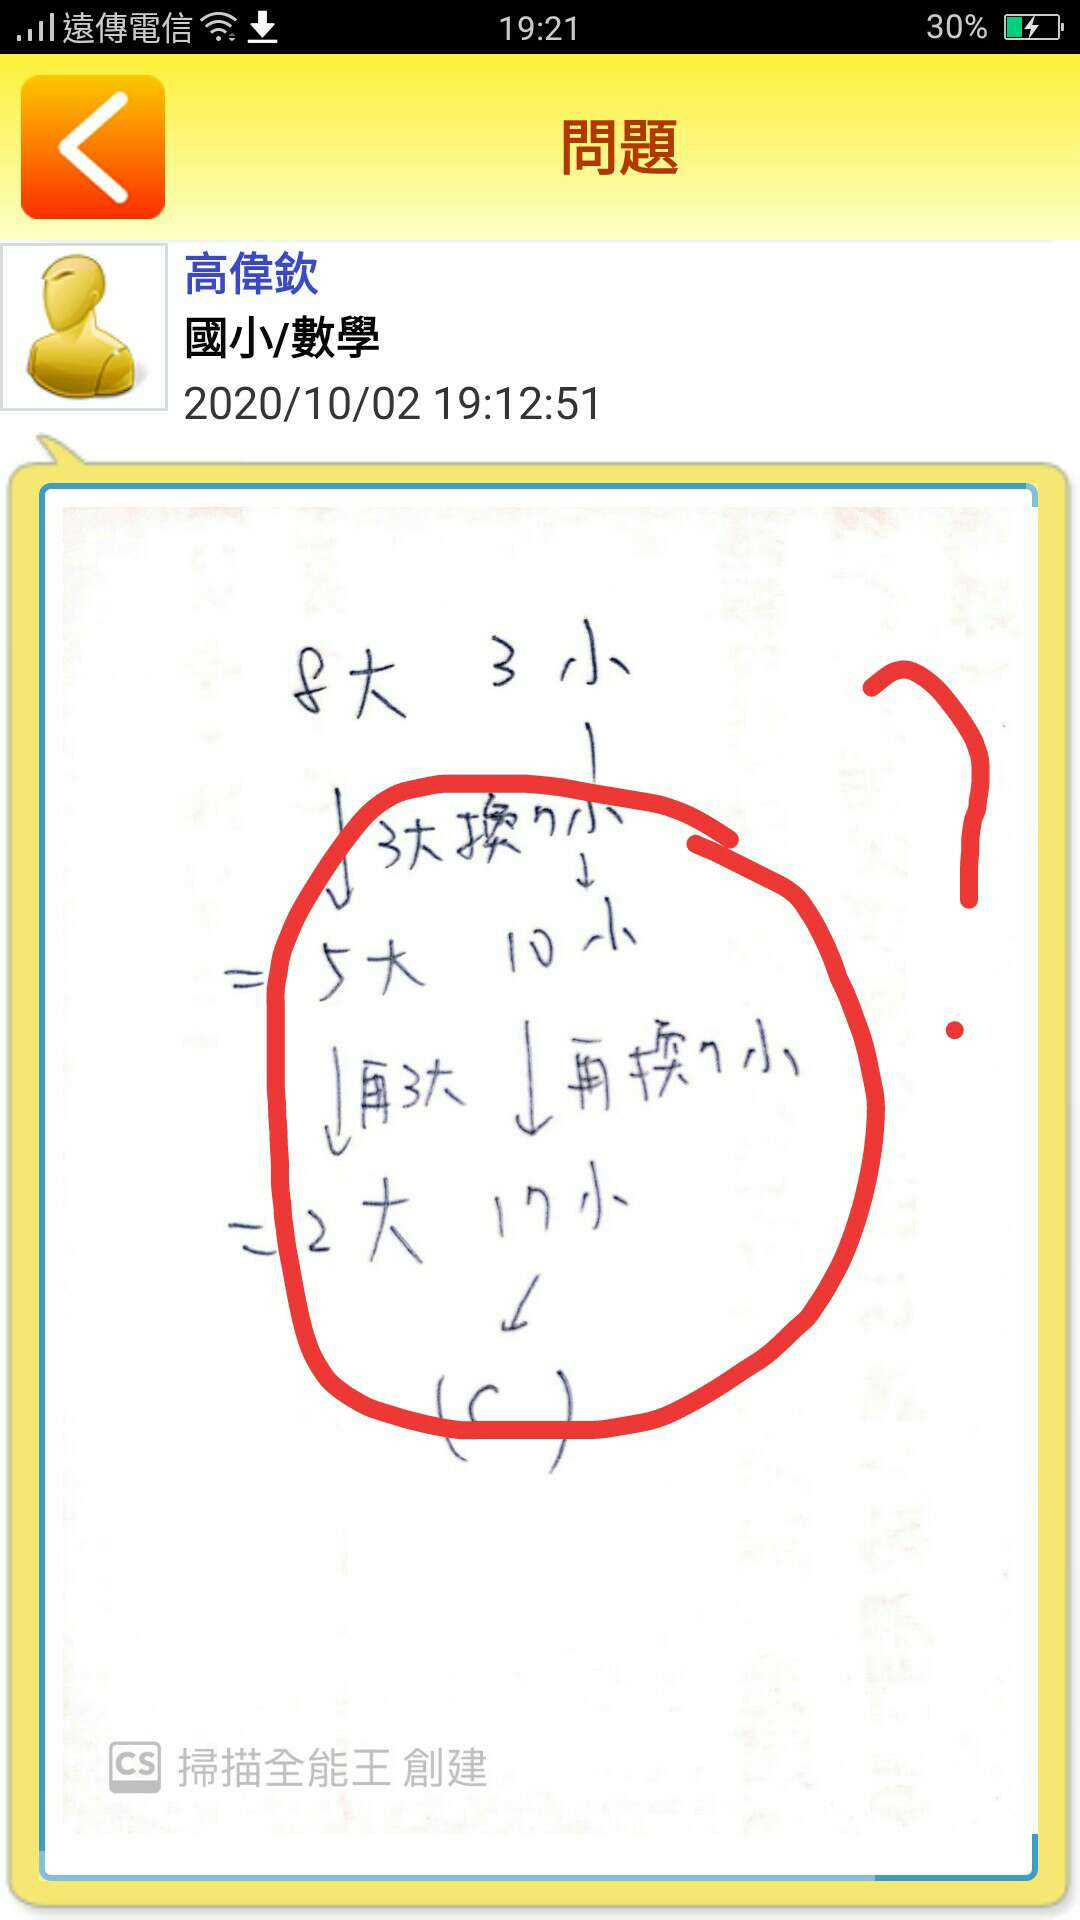 遠傳電信 19:21 30%
問題
高偉欽
國小/數學
2020/10/02 19:12:51
8大 3小
3大換7小
=5大 10小
再3大 再換7小
=2大 17小
(C)
?
CS 掃描全能王 創建